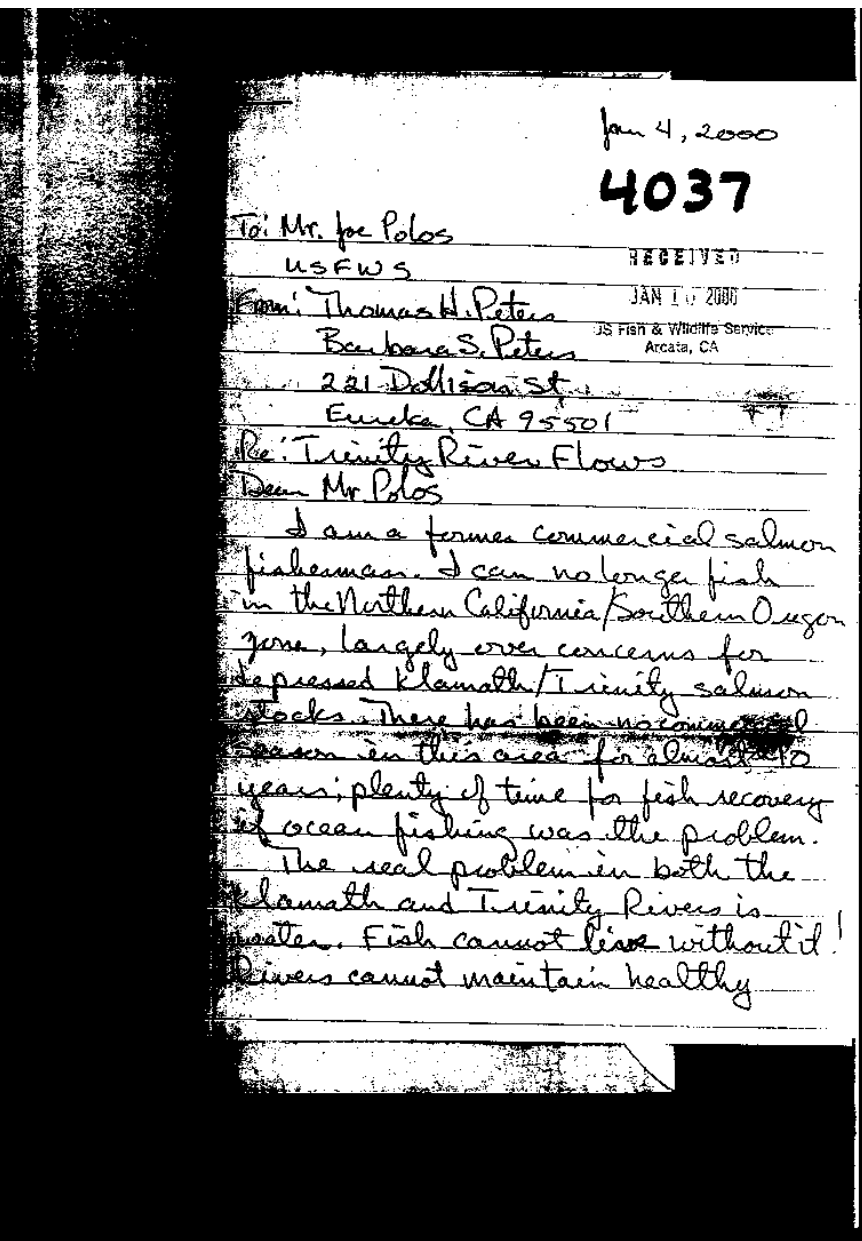 Jan 4, 2000
4037
To: Mr. Joe Polos
RECEIVED
USFWS
JAN 10 2000
From: Thomas H. Peters
US Fish & Wildlife Service
Barbara S. Peters
Arcata, CA
221 Dollison St.
Eureka, CA 95501
Re: Trinity River Flows
Dear Mr. Polos
I am a former commercial salmon
fisherman. I can no longer fish
in the Northern California/Southern Oregon
zone, largely over concerns for
depressed Klamath/Trinity salmon
stocks. There has been no commercial
season in this area for almost 10
years; plenty of time for fish recovery
if ocean fishing was the problem.
The real problem in both the
Klamath and Trinity Rivers is
water. Fish cannot live without it!
Rivers cannot maintain healthy